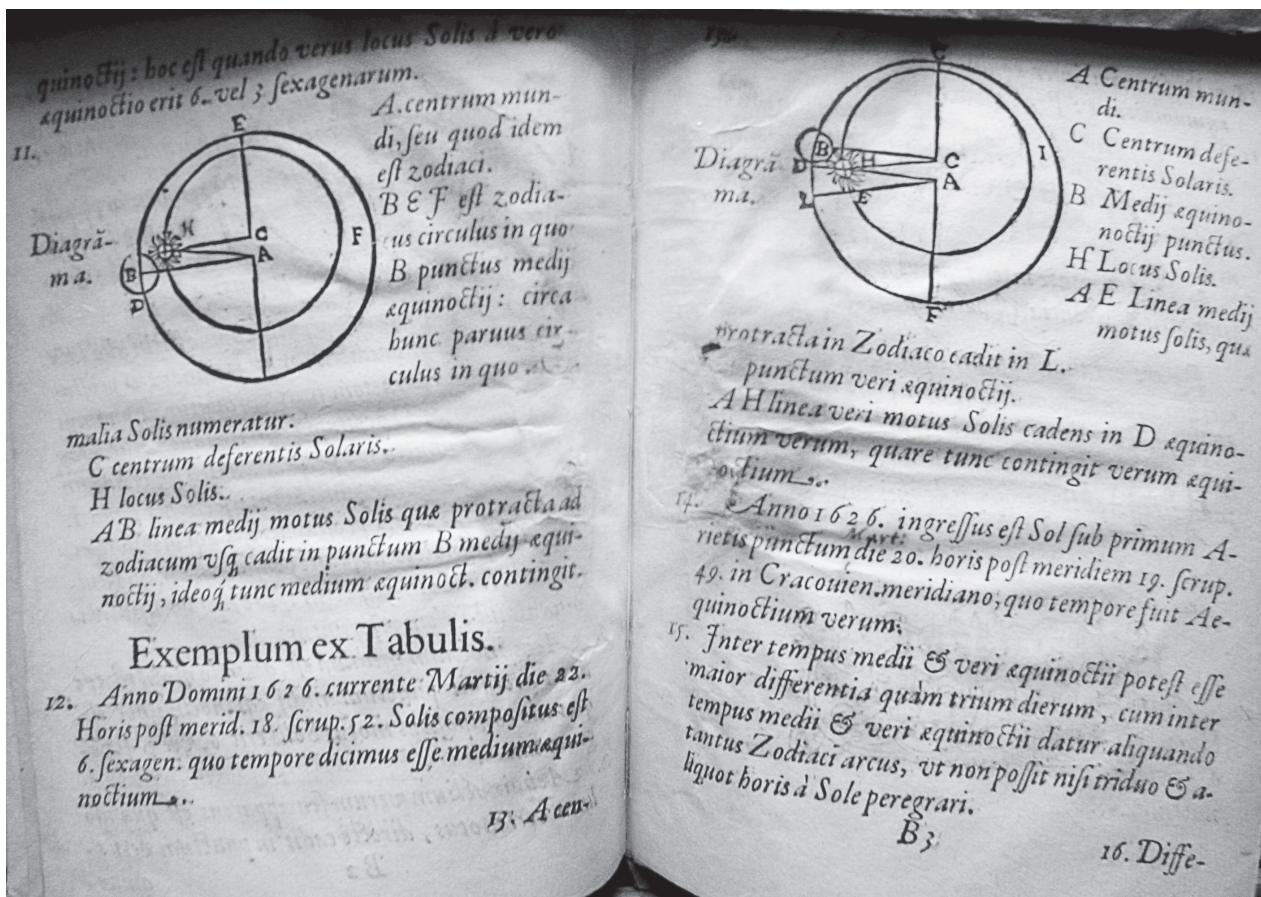 quinoctij: hoc eſt quando verus locus Solis à vero
æquinoctio erit 6. vel 3 ſexagenarum.
11.
Diagrã-
ma.
E
H
C
A
F
B
D
A. centrum mun-
di, ſeu quod idem
eſt zodiaci.
B E F eſt zodia-
cus circulus in quo
B punctus medij
æquinoctij: circa
hunc paruus cir-
culus in quo
malia Solis numeratur.
C centrum deferentis Solaris.
H locus Solis.
A B linea medij motus Solis quæ protracta ad
zodiacum vſq́ cadit in punctum B medij æqui-
noctij, ideoq́ tunc medium æquinoct. contingit.
Exemplum ex Tabulis.
12. Anno Domini 1626. currente Martij die 22.
Horis poſt merid. 18. ſcrup. 52. Solis compoſitus eſt
6. ſexagen. quo tempore dicimus eſſe medium æqui-
noctium.
13. A cen-
13.
Diagrã-
ma.
B
H
C
A
I
D
L
E
F
A Centrum mun-
di.
C Centrum defe-
rentis Solaris.
B Medij æquino-
noctij punctus.
H Locus Solis.
A E Linea medij
motus ſolis, quæ
protracta in Zodiaco cadit in L.
punctum veri æquinoctij.
A H linea veri motus Solis cadens in D æquino-
ctium verum, quare tunc contingit verum æqui-
octium.
14. Anno 1626. ingreſſus eſt Sol ſub primum A-
Mart:
rietis punctum die 20. horis poſt meridiem 19. ſcrup.
49. in Cracouien. meridiano, quo tempore fuit Ae-
quinoctium verum.
15. Inter tempus medii & veri æquinoctii poteſt eſſe
maior differentia quàm trium dierum, cum inter
tempus medii & veri æquinoctii datur aliquando
tantus Zodiaci arcus, vt non poſſit niſi triduo & a-
liquot horis à Sole peregrari.
B 3
16. Diffe-